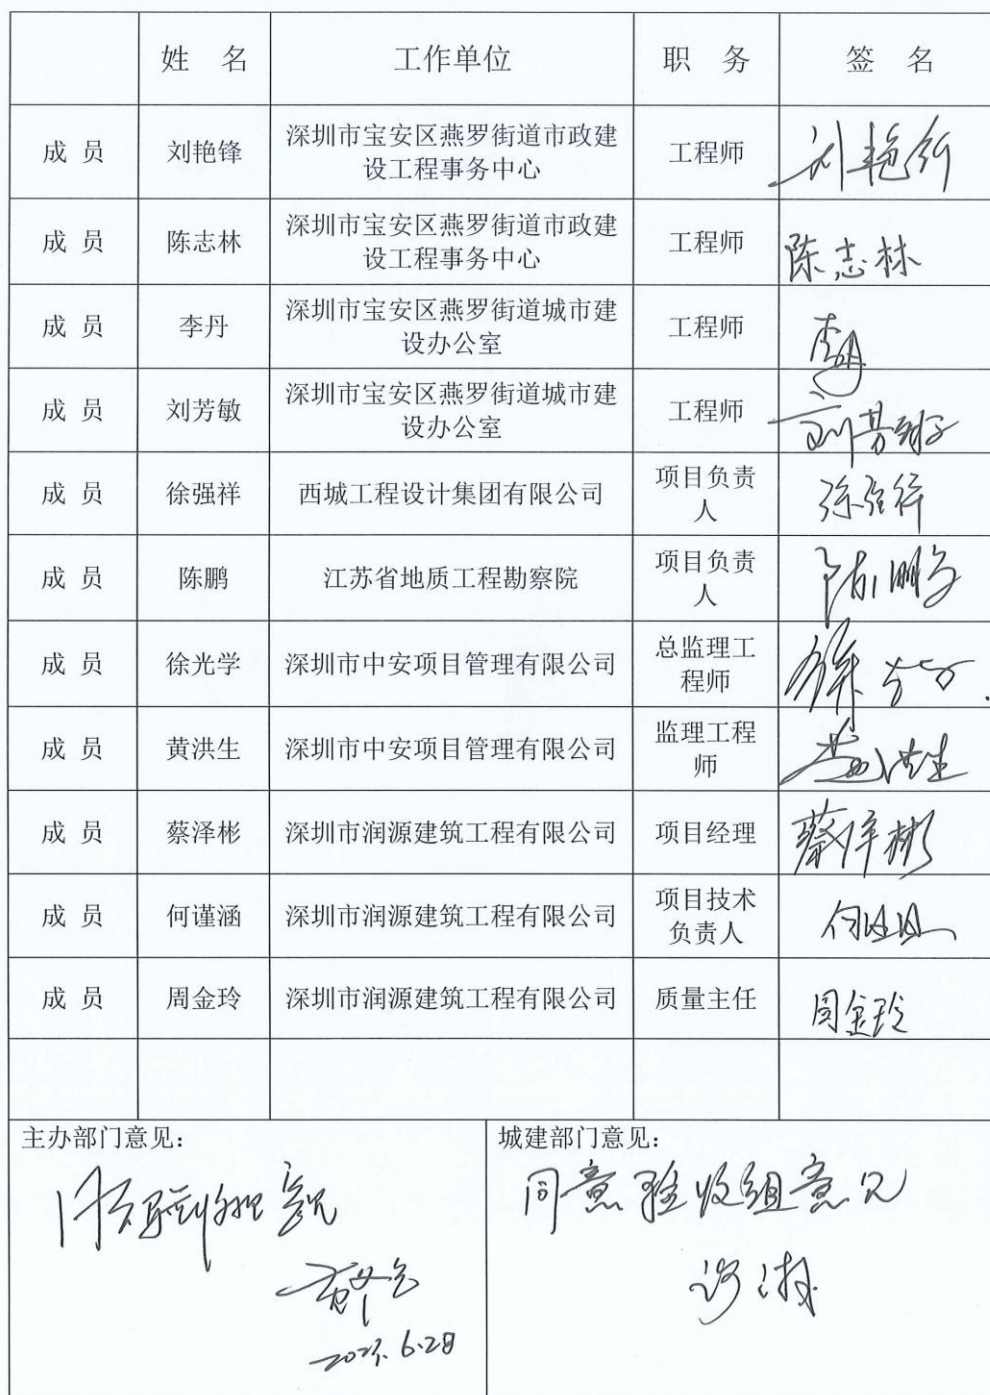 姓 名 工作单位 职 务 签 名
成 员 刘艳锋 深圳市宝安区燕罗街道市政建 工程师 刘艳锋
设工程事务中心
成 员 陈志林 深圳市宝安区燕罗街道市政建 工程师 陈志林
设工程事务中心
成 员 李丹 深圳市宝安区燕罗街道城市建 工程师 李丹
设办公室
成 员 刘芳敏 深圳市宝安区燕罗街道城市建 工程师 刘芳敏
设办公室
成 员 徐强祥 西城工程设计集团有限公司 项目负责 徐强祥
人
成 员 陈鹏 江苏省地质工程勘察院 项目负责 陈鹏
人
成 员 徐光学 深圳市中安项目管理有限公司 总监理工 徐光学
程师
成 员 黄洪生 深圳市中安项目管理有限公司 监理工程 黄洪生
师
成 员 蔡泽彬 深圳市润源建筑工程有限公司 项目经理 蔡泽彬
成 员 何谨涵 深圳市润源建筑工程有限公司 项目技术 何谨涵
负责人
成 员 周金玲 深圳市润源建筑工程有限公司 质量主任 周金玲
主办部门意见： 城建部门意见：
同意验收组意见 同意验收组意见
6.28